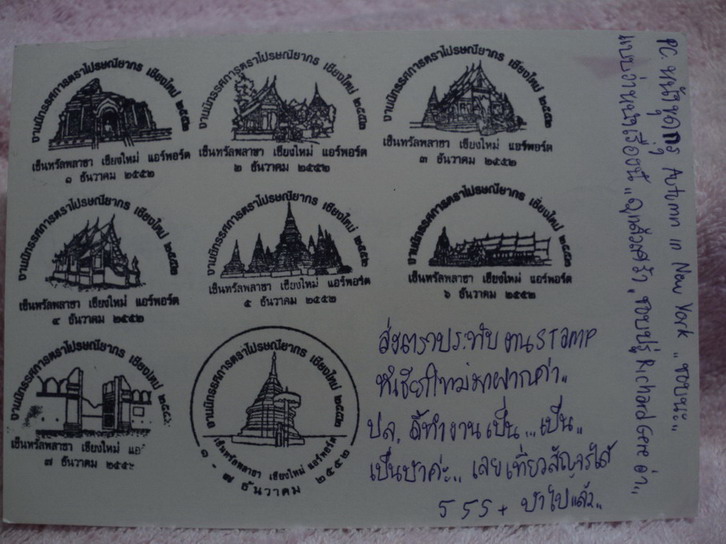 งานนิทรรศการตราไปรษณียากร เชียงใหม่ ๒๕๕๒
เซ็นทรัลพลาซา เชียงใหม่ แอร์พอร์ต
๑ ธันวาคม ๒๕๕๒
งานนิทรรศการตราไปรษณียากร เชียงใหม่ ๒๕๕๒
เซ็นทรัลพลาซา เชียงใหม่ แอร์พอร์ต
๒ ธันวาคม ๒๕๕๒
งานนิทรรศการตราไปรษณียากร เชียงใหม่ ๒๕๕๒
เซ็นทรัลพลาซา เชียงใหม่ แอร์พอร์ต
๓ ธันวาคม ๒๕๕๒
งานนิทรรศการตราไปรษณียากร เชียงใหม่ ๒๕๕๒
เซ็นทรัลพลาซา เชียงใหม่ แอร์พอร์ต
๔ ธันวาคม ๒๕๕๒
งานนิทรรศการตราไปรษณียากร เชียงใหม่ ๒๕๕๒
เซ็นทรัลพลาซา เชียงใหม่ แอร์พอร์ต
๕ ธันวาคม ๒๕๕๒
งานนิทรรศการตราไปรษณียากร เชียงใหม่ ๒๕๕๒
เซ็นทรัลพลาซา เชียงใหม่ แอร์พอร์ต
๖ ธันวาคม ๒๕๕๒
งานนิทรรศการตราไปรษณียากร เชียงใหม่ ๒๕๕๒
เซ็นทรัลพลาซา เชียงใหม่ แอร์พอร์ต
๗ ธันวาคม ๒๕๕๒
งานนิทรรศการตราไปรษณียากร เชียงใหม่ ๒๕๕๒
เซ็นทรัลพลาซา เชียงใหม่ แอร์พอร์ต
๑ - ๗ ธันวาคม ๒๕๕๒
ส่งตราประทับงาน STAMP
ที่เชียงใหม่มาฝากค่า..
ปล. สีทำงานเป็น... เป็น..
เป็นบ้าค่ะ.. เลยเที่ยวสัญจรได้
555+ บ้าไปแล้ว..
PC. หนัง Autumn in New York .. ชอบนะ..
Richard Gere อ่ะ..